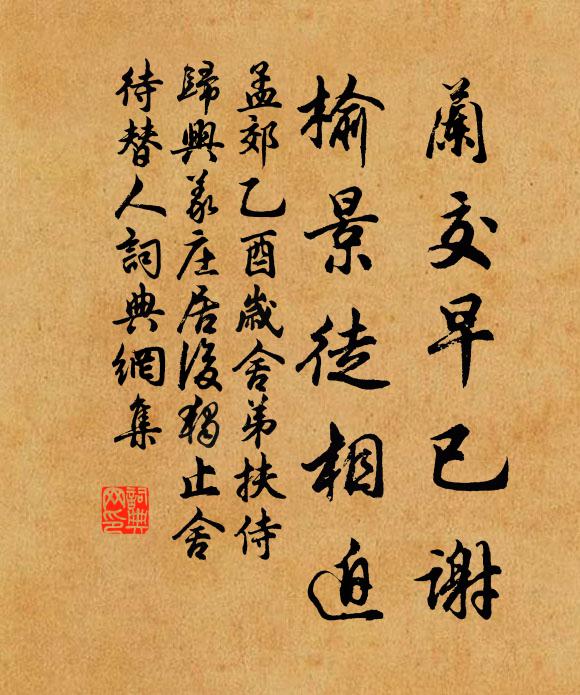 蘭交早已謝
榆景徒相迫
孟郊乙酉歲舍弟扶侍
歸興義庄居後獨止舍
待替人詞典網集
詞典網印